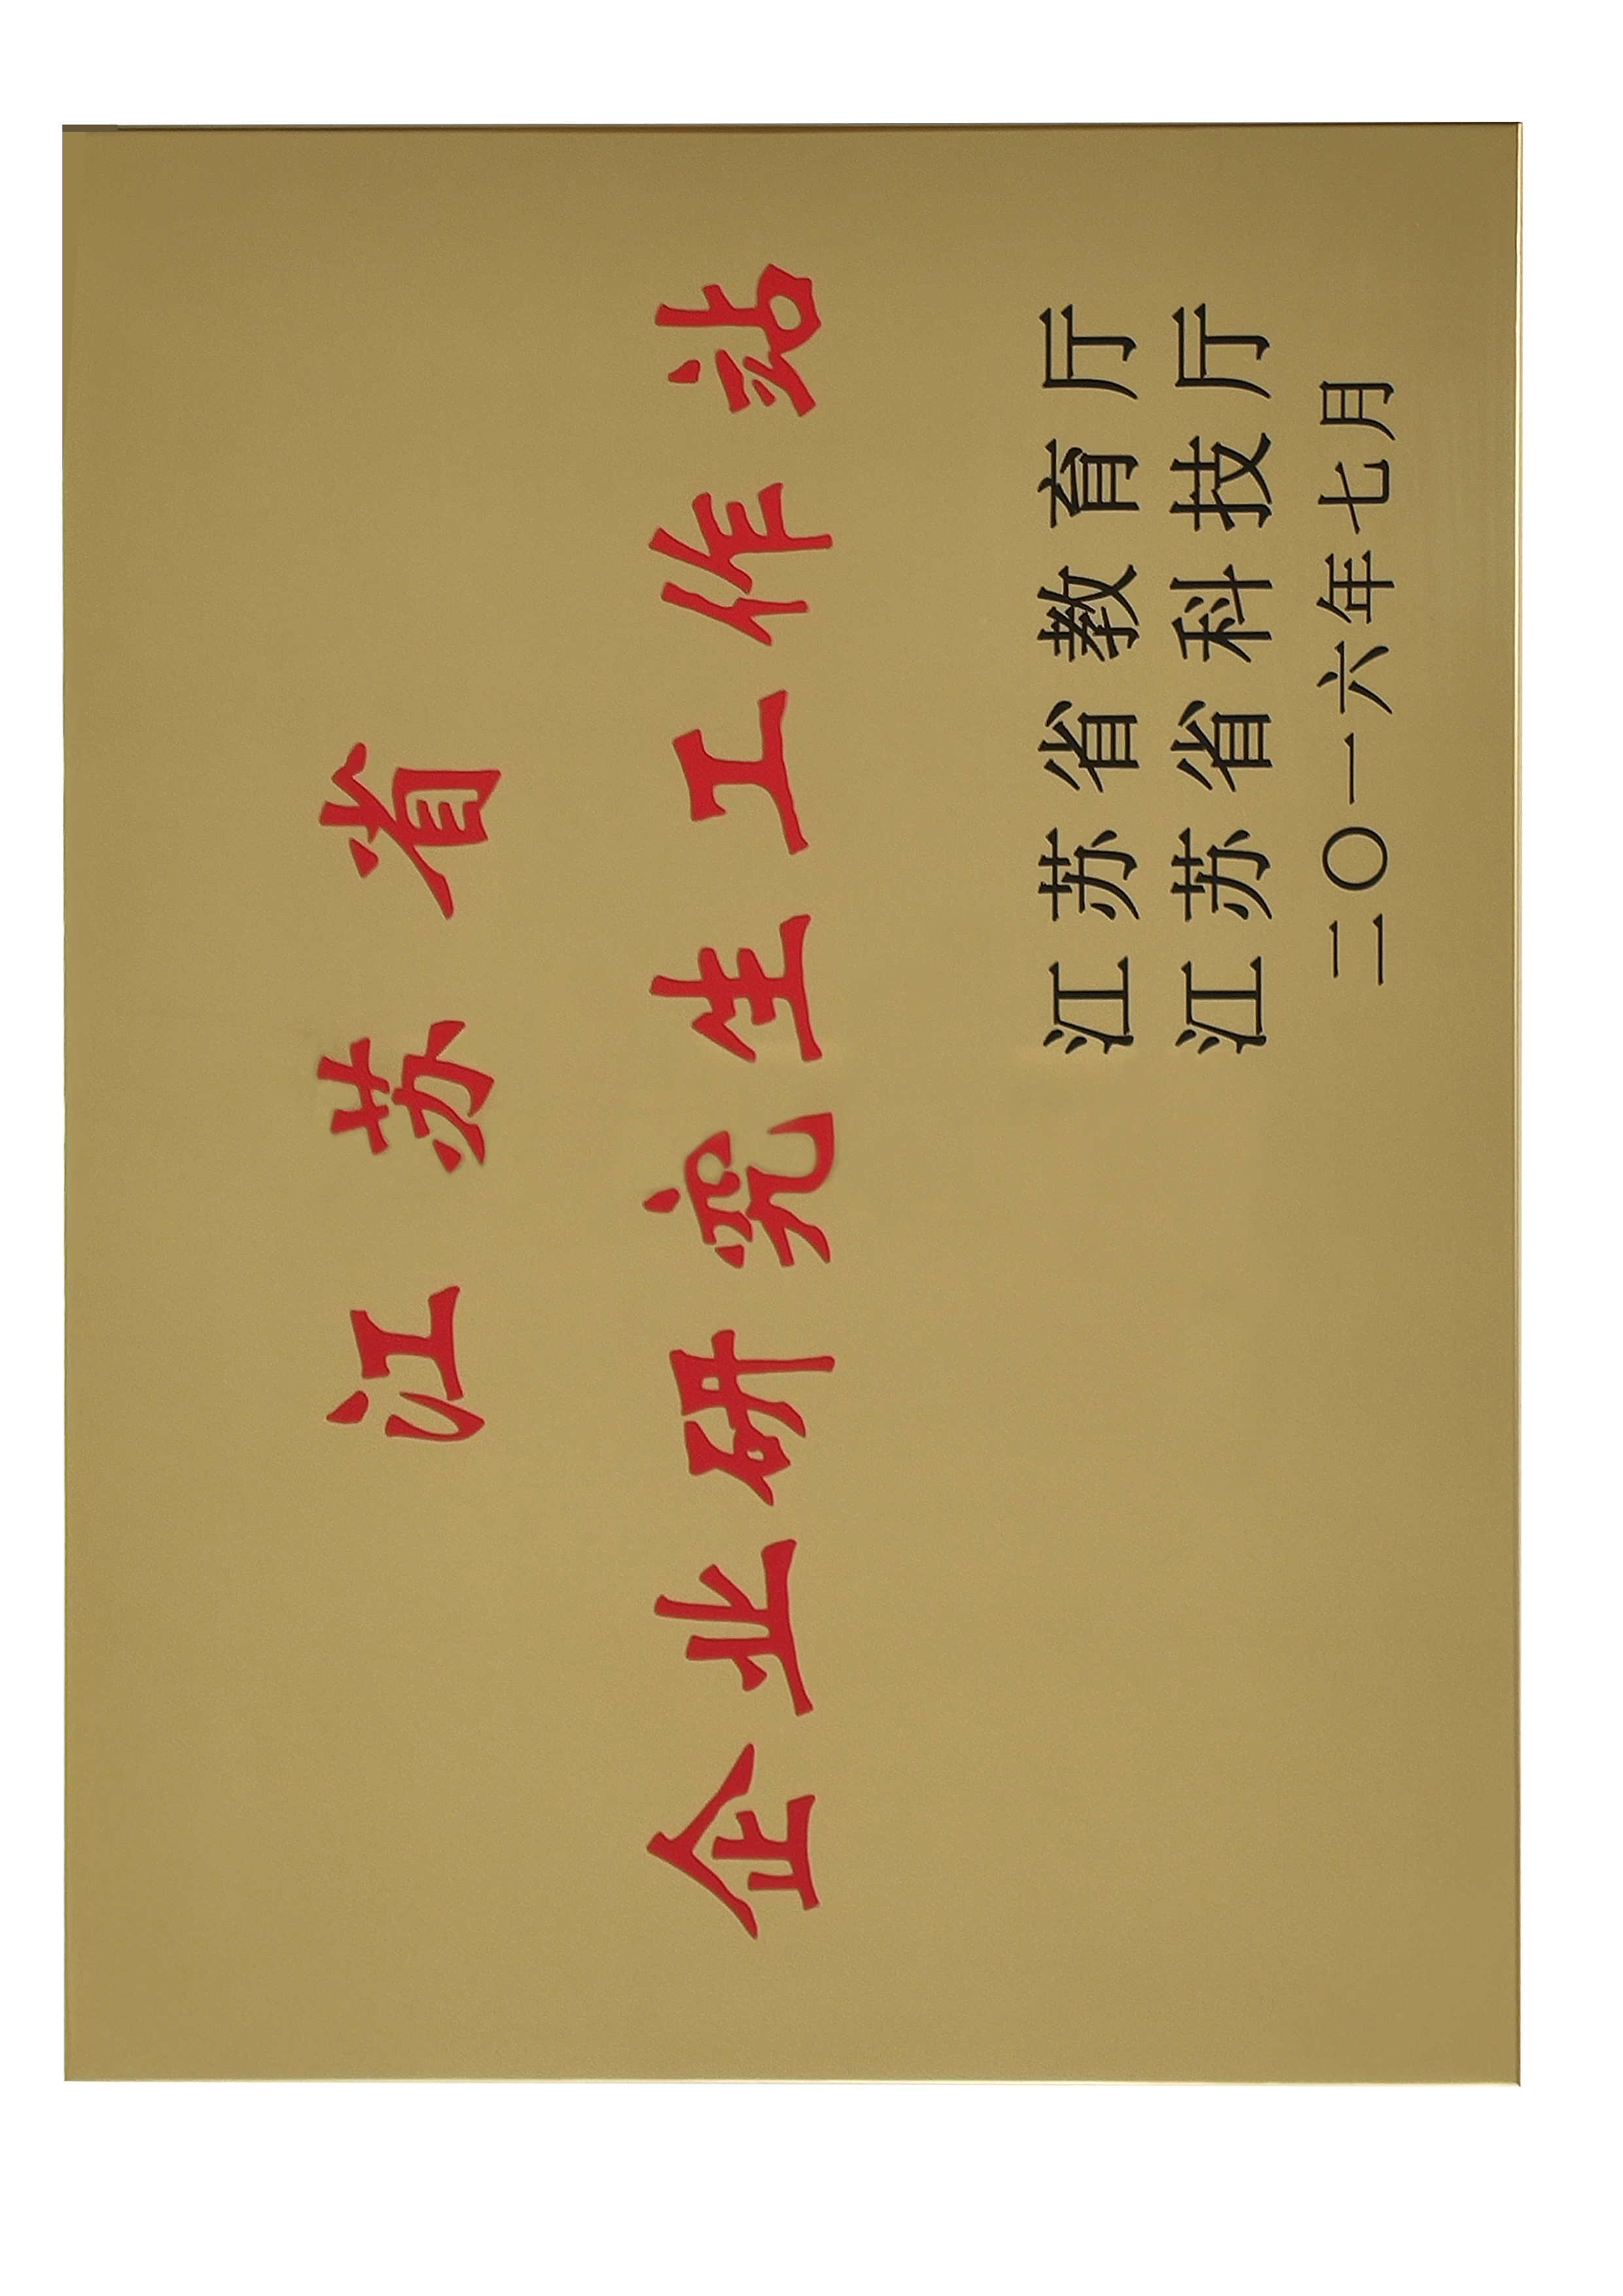 江苏省
企业研究生工作站
江苏省教育厅
江苏省科技厅
二〇一六年七月